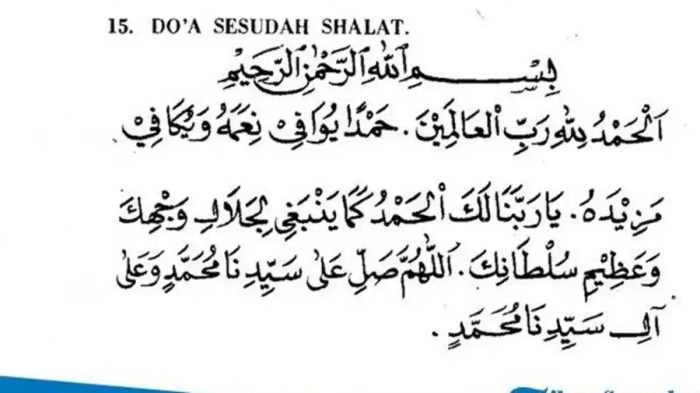 15. DO'A SESUDAH SHALAT.
بِسْمِ اللهِ الرَّحْمٰنِ الرَّحِيْمِ
اَلْحَمْدُ لِلّٰهِ رَبِّ الْعَالَمِيْنَ. حَمْدًا يُوَافِيْ نِعَمَهُ وَيُكَافِيْ
مَزِيْدَهُ. يَا رَبَّنَا لَكَ الْحَمْدُ كَمَا يَنْبَغِيْ لِجَلَالِ وَجْهِكَ
وَعَظِيْمِ سُلْطَانِكَ. اَللّٰهُمَّ صَلِّ عَلٰى سَيِّدِنَا مُحَمَّدٍ وَعَلٰى
آلِ سَيِّدِنَا مُحَمَّدٍ.